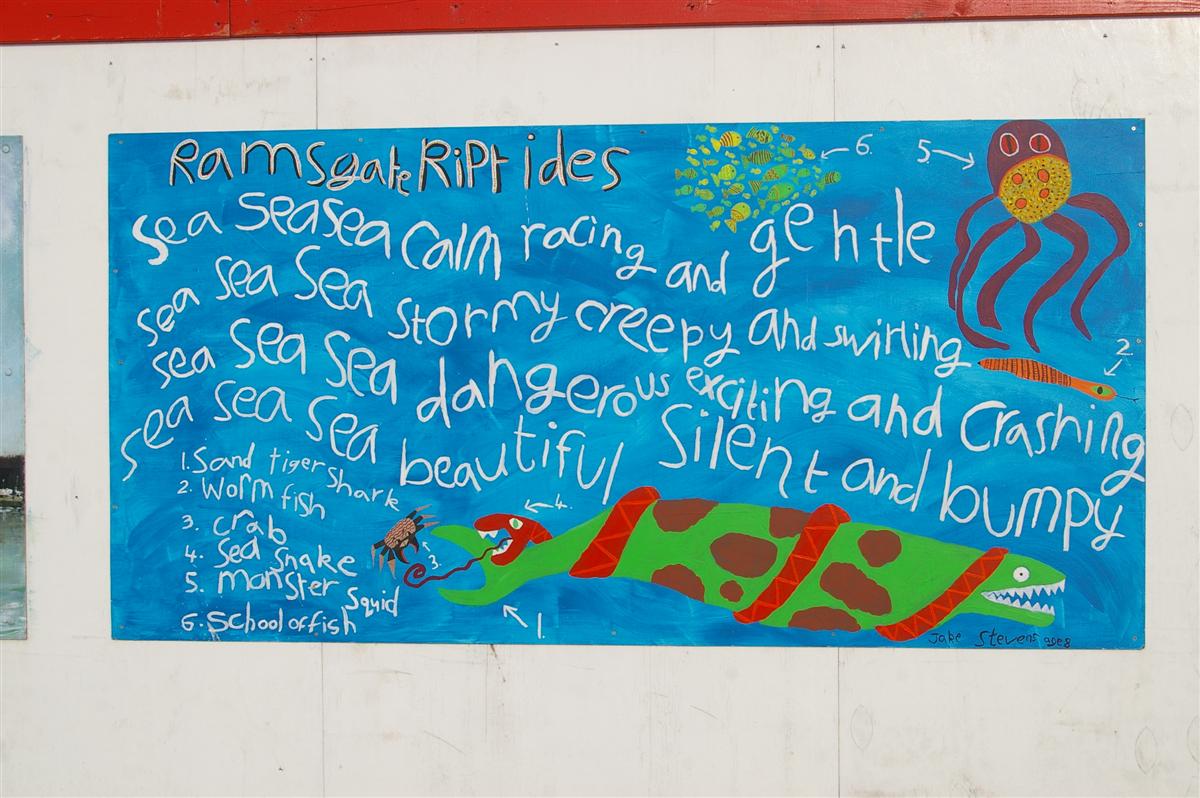 Ramsgate RiPtides
sea sea sea calm racing and gentle
sea sea sea stormy creepy and swirling
sea sea sea dangerous exciting and crashing
sea sea sea beautiful silent and bumpy
1. Sand tiger shark
2. worm fish
3. crab
4. sea snake
5. monster squid
6. school of fish
6.
5.
2
4.
3.
1.
Jake Stevens age 8